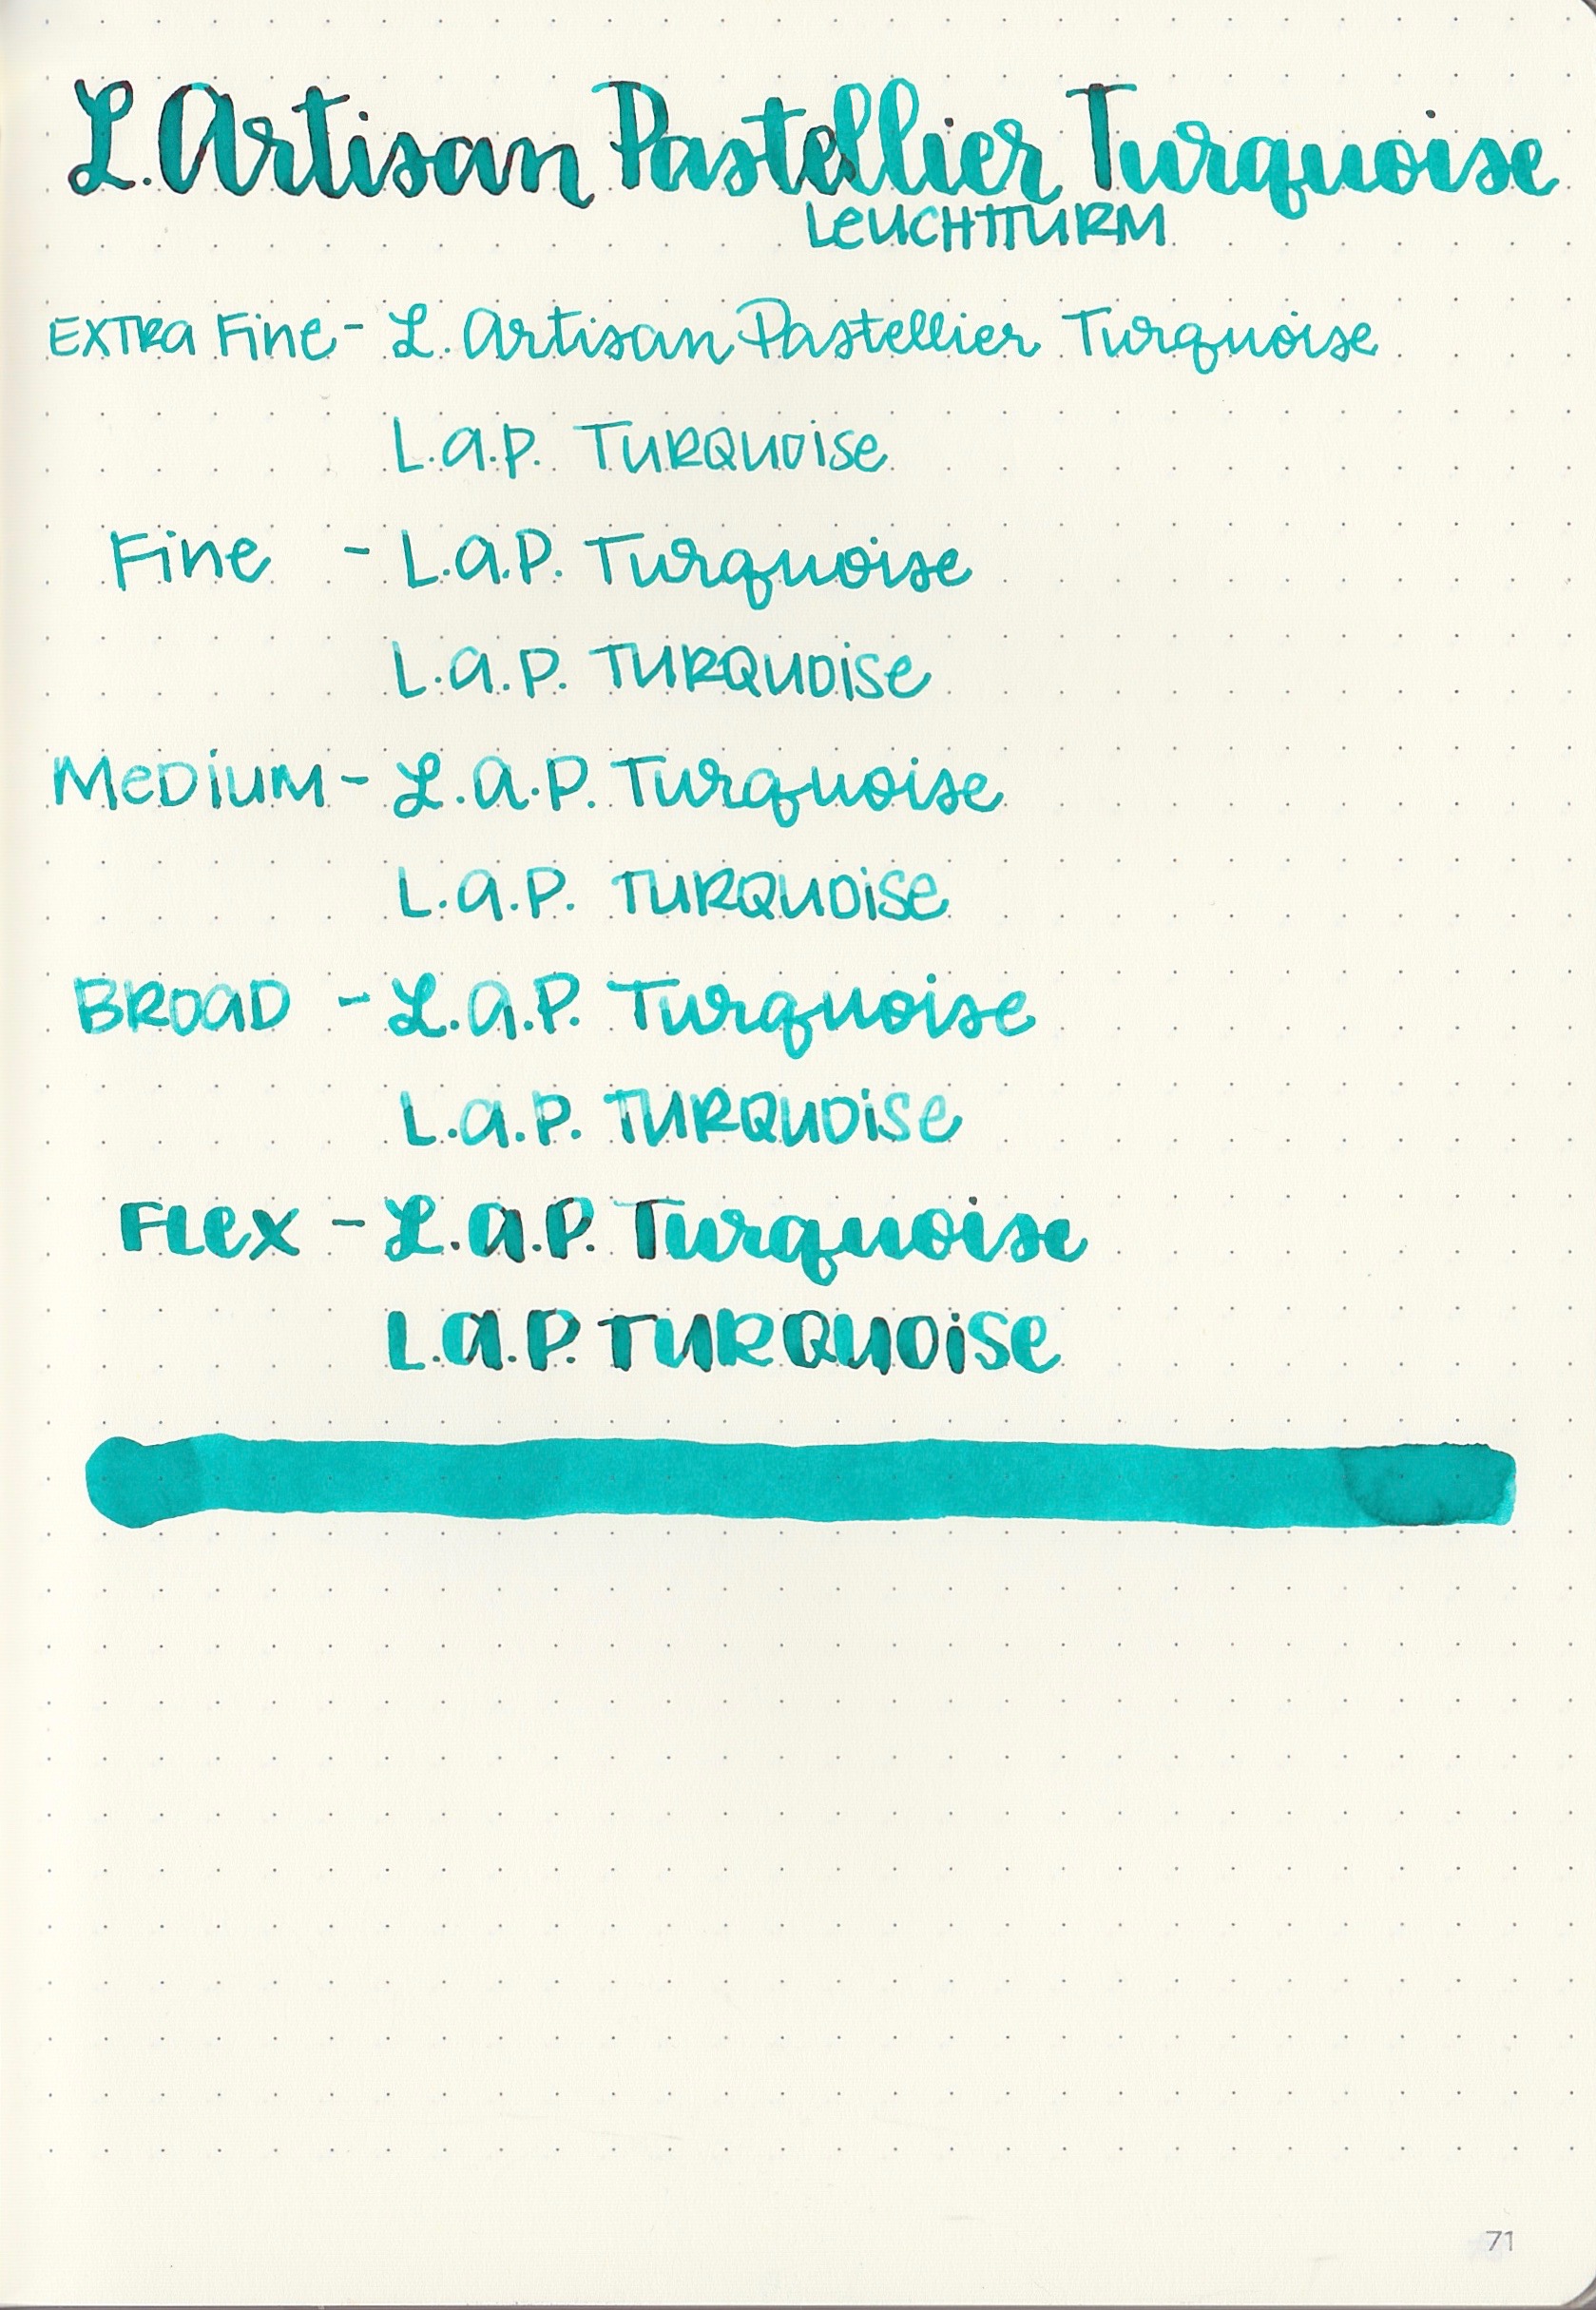 L. Artisan Pastellier Turquoise
LeUCHTTURM
EXTRa Fine - L. Artisan Pastellier Turquoise
L.a.P. TURQUOise
Fine - L.a.P. Turquoise
L.a.P. TURQUOise
MeDiUM - L.a.P. Turquoise
L.a.P. TURQUOise
BROaD - L.a.P. Turquoise
L.a.P. TURQUOise
FLex - L.a.P. Turquoise
L.a.P. TURQUOise
71